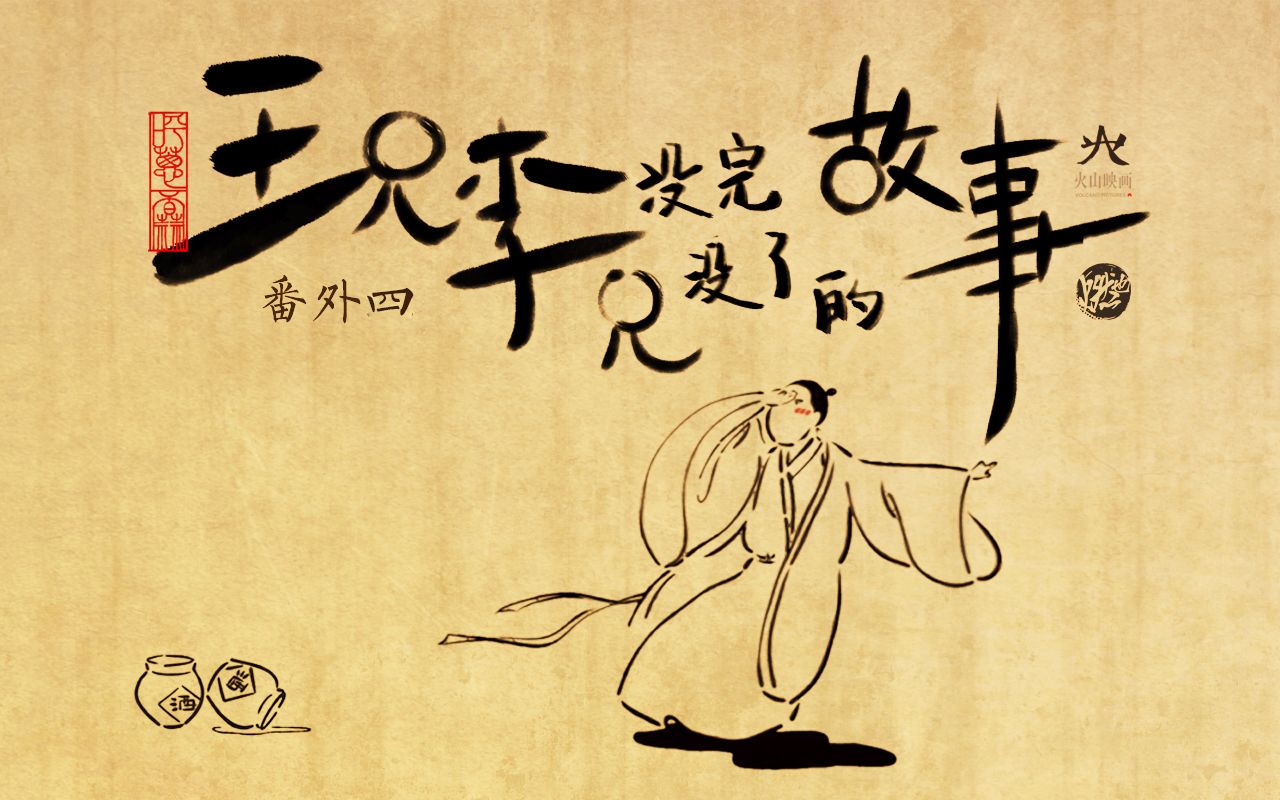 王兄李兄没完没了的故事
番外四
火山映画
VOLCANO PICTURES
酒
酒